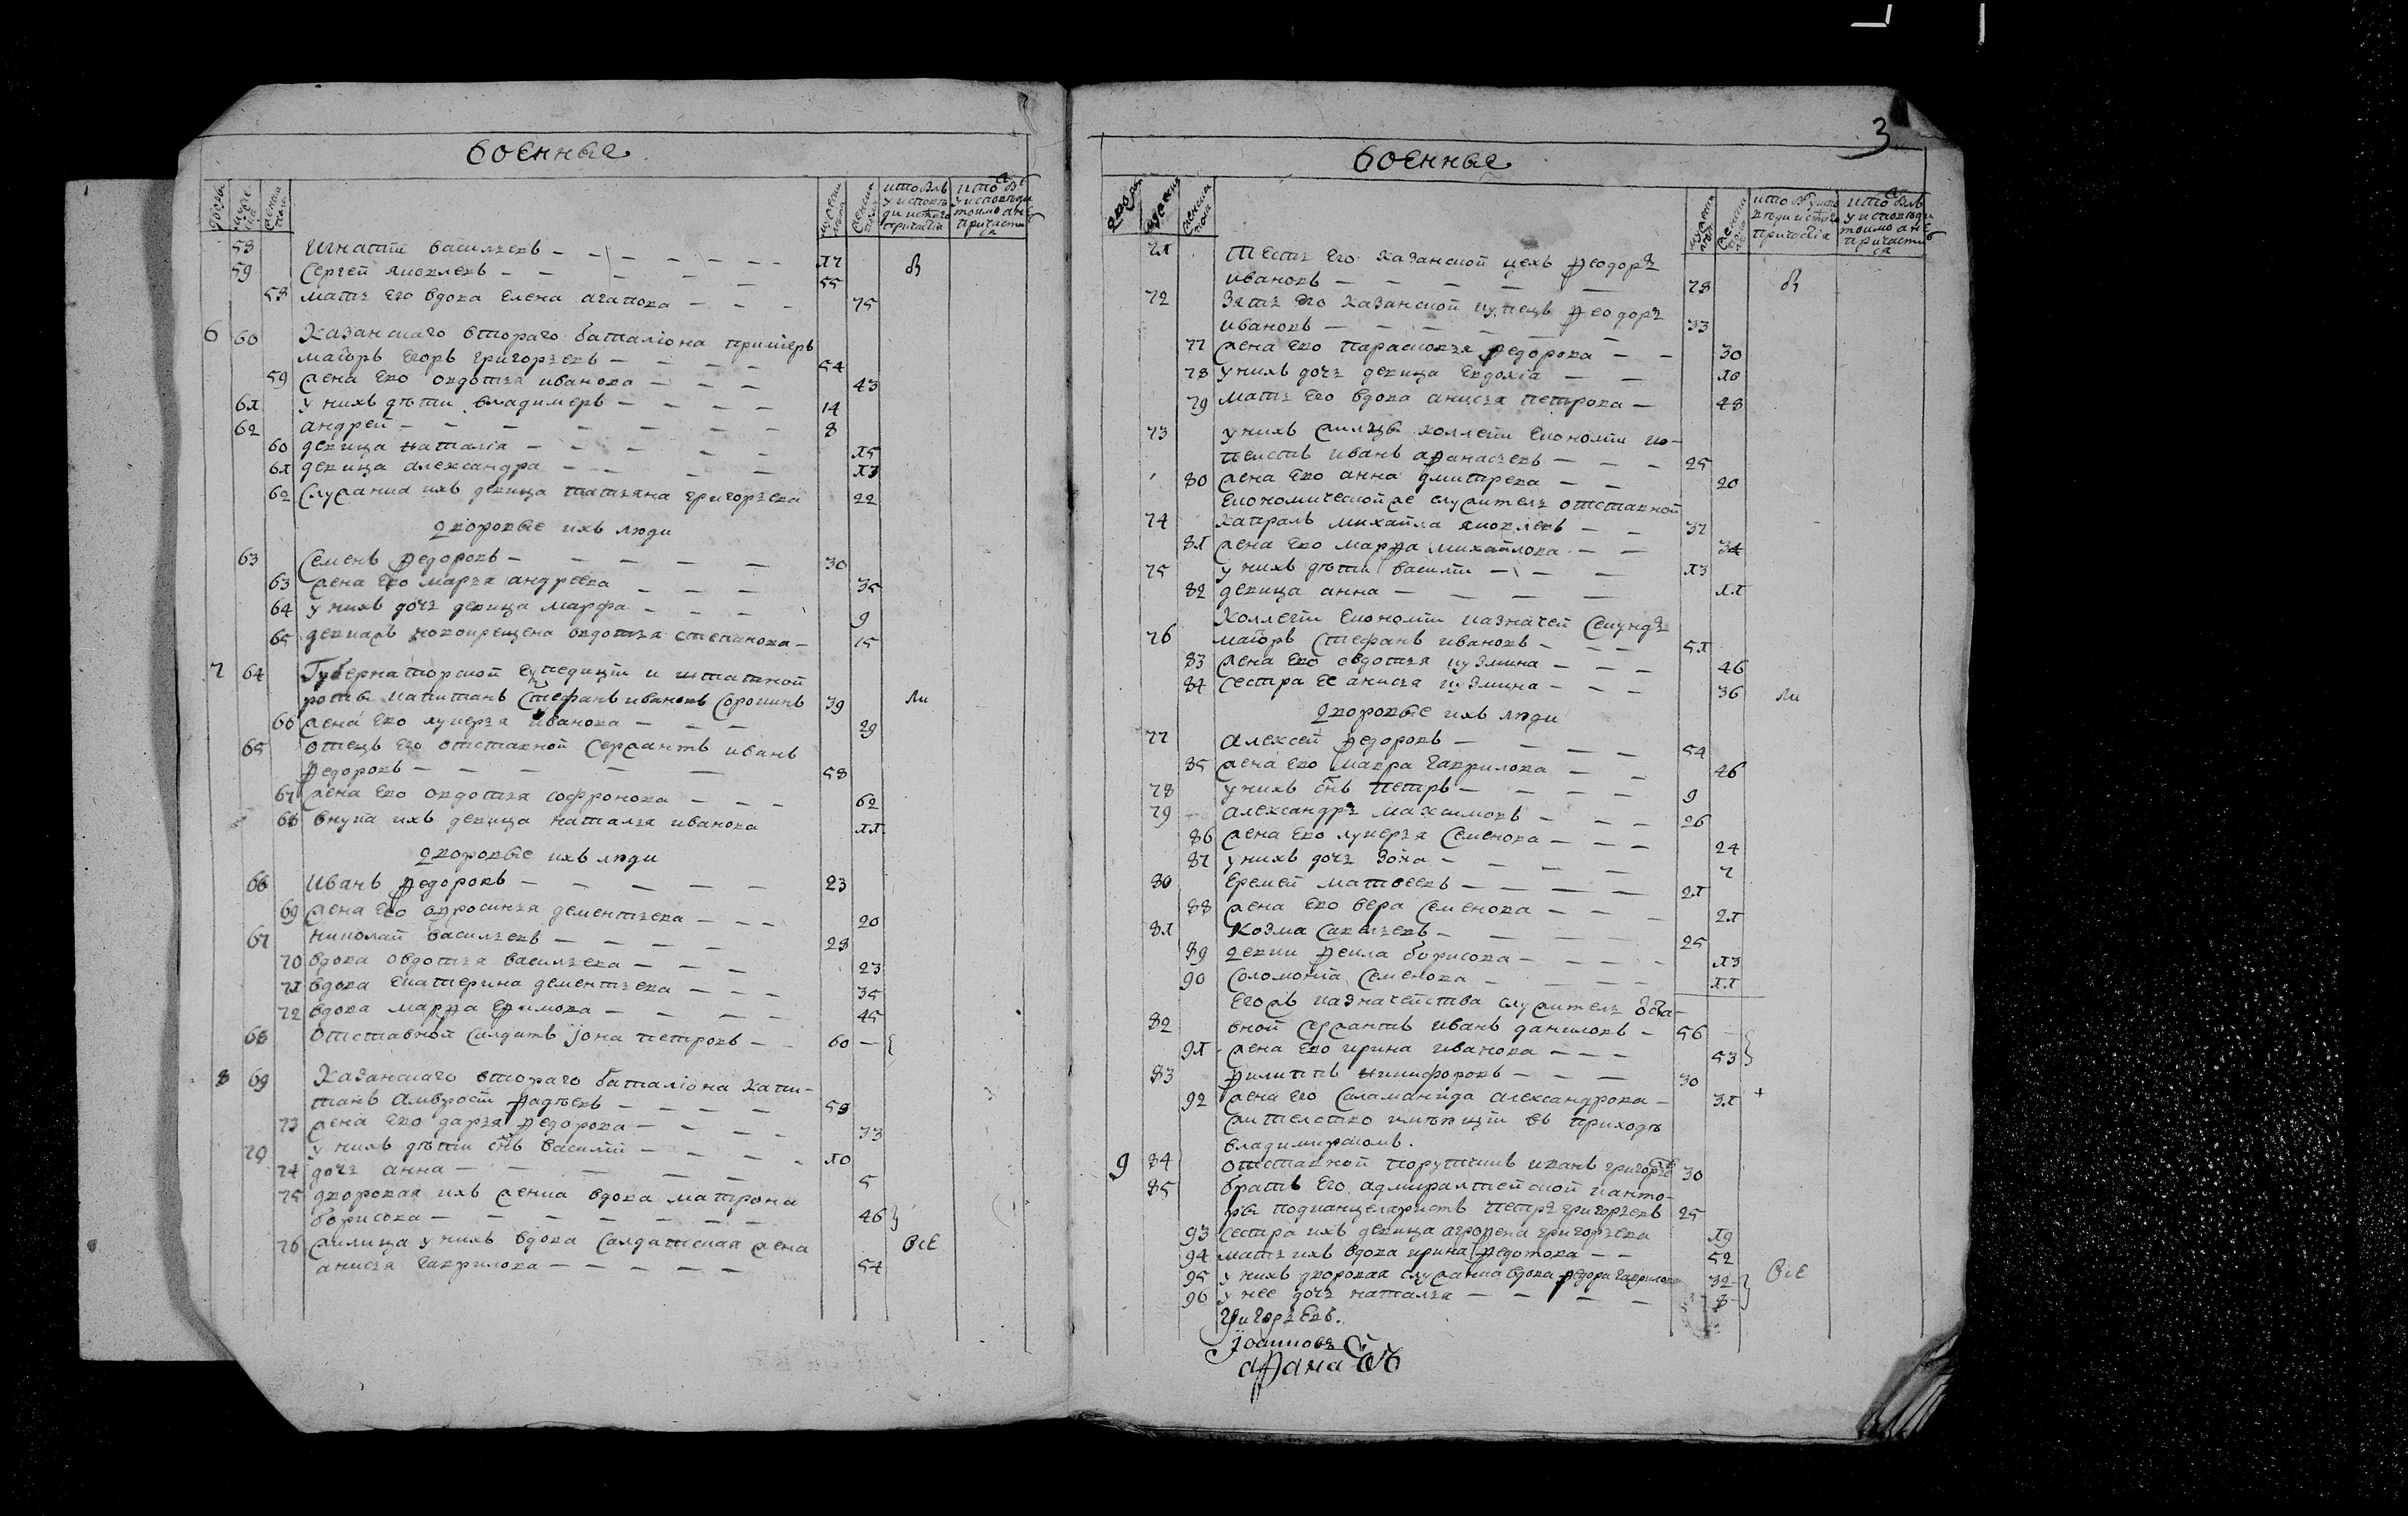 военные
58 Игнатий васильевъ 17
59 Сергей яковлевъ 55
58 мать его вдова Елена агапова 75
6 60 Казанскаго втораго баталiона примiеръ
маiоръ Егоръ григорьевъ 54
59 жена ево овдотья иванова 43
61 у нихъ дѣти владимеръ 14
62 андрей 8
60 девица наталiя 15
61 девица александра 13
62 служанка ихъ девица татьяна григорьева 22
дворовые ихъ люди
63 Семенъ федоровъ 30
63 жена ево марья андреева 35
64 у нихъ дочь девица марфа 9
65 девка новокрещена овдотья степанова 15
7 64 Губернаторской и штатной
роты капитанъ Стефанъ ивановъ Сорокинъ 39
66 жена ево лукерья иванова 29
65 отецъ его отставной сержантъ иванъ
федоровъ 58
67 жена ево овдотья софронова 62
68 внука ихъ девица наталья иванова 11
дворовые ихъ люди
66 Иванъ федоровъ 23
69 жена ево офросинья дементьева 20
67 николай васильевъ 28
70 вдова овдотья васильева 23
71 вдова екатерина дементьева 35
72 вдова марфа ефимова 45
68 отставной салдатъ iона петровъ 60
8 69 Казанскаго втораго баталiона капи-
танъ Амвросiй фадѣевъ 59
73 жена ево дарья федорова 33
70 у нихъ дѣти снъ василiй 10
74 дочь анна 5
75 дворовая ихъ женка вдова матрона
борисова 46
76 жилица у нихъ вдова салдатская жена Всѣ
анисья гаврилова 54
3
военные
71 тесть его казанской цехъ феодоръ
ивановъ 78
72 зять его казанской купецъ феодоръ
ивановъ 33
77 жена ево парасковья федорова 30
78 у нихъ дочь девица евдокiа 10
79 мать его вдова анисья петрова 48
73 у нихъ жильцы коллегiи економiи ко-
пеистъ иванъ афанасьевъ 25
80 жена ево анна дмитрева 20
економической же служитель отставной
74 капралъ михайла яковлевъ 37
81 жена ево марфа михайлова 34
75 у нихъ дѣти василiй 13
82 девица анна 11
Коллегiи економiи казначей секундъ
76 маiоръ Стефанъ ивановъ 51
83 жена ево овдотья кузмина 46
84 сестра ее анисья кузмина 36
дворовые ихъ люди
77 Алексей федоровъ 54
85 жена ево мавра гаврилова 46
78 у нихъ снъ петръ 9
79 александръ максимовъ 26
86 жена ево лукерья семенова 24
87 у нихъ дочь зоиа 7
80 еремей матвеевъ 21
88 жена ево вера семенова 21
81 козма савельевъ 25
89 девки фекла борисова 13
90 соломонiа семенова 11
Егожъ казначейства служитель отста-
82 вной сержантъ иванъ даниловъ 56
91 жена ево ирина иванова 53
83 филиппъ никифоровъ 30
92 жена его саламанида александрова 31 +
жителство имѣющiи въ приходѣ
владимирскомъ.
9 84 отставной порутчикъ иванъ григорьевъ 30
85 братъ его адмиралтейской канто-
ры подканцеляристъ петръ григорьевъ 25
93 сестра ихъ девица агрофена григорьева 19
94 мать ихъ вдова ирина федотова 52
95 у нихъ дворовая служанка вдова федора гаврилова 32 Всѣ
96 у нее дочь наталья 8
григорьевъ.
Iоанновъ
афана